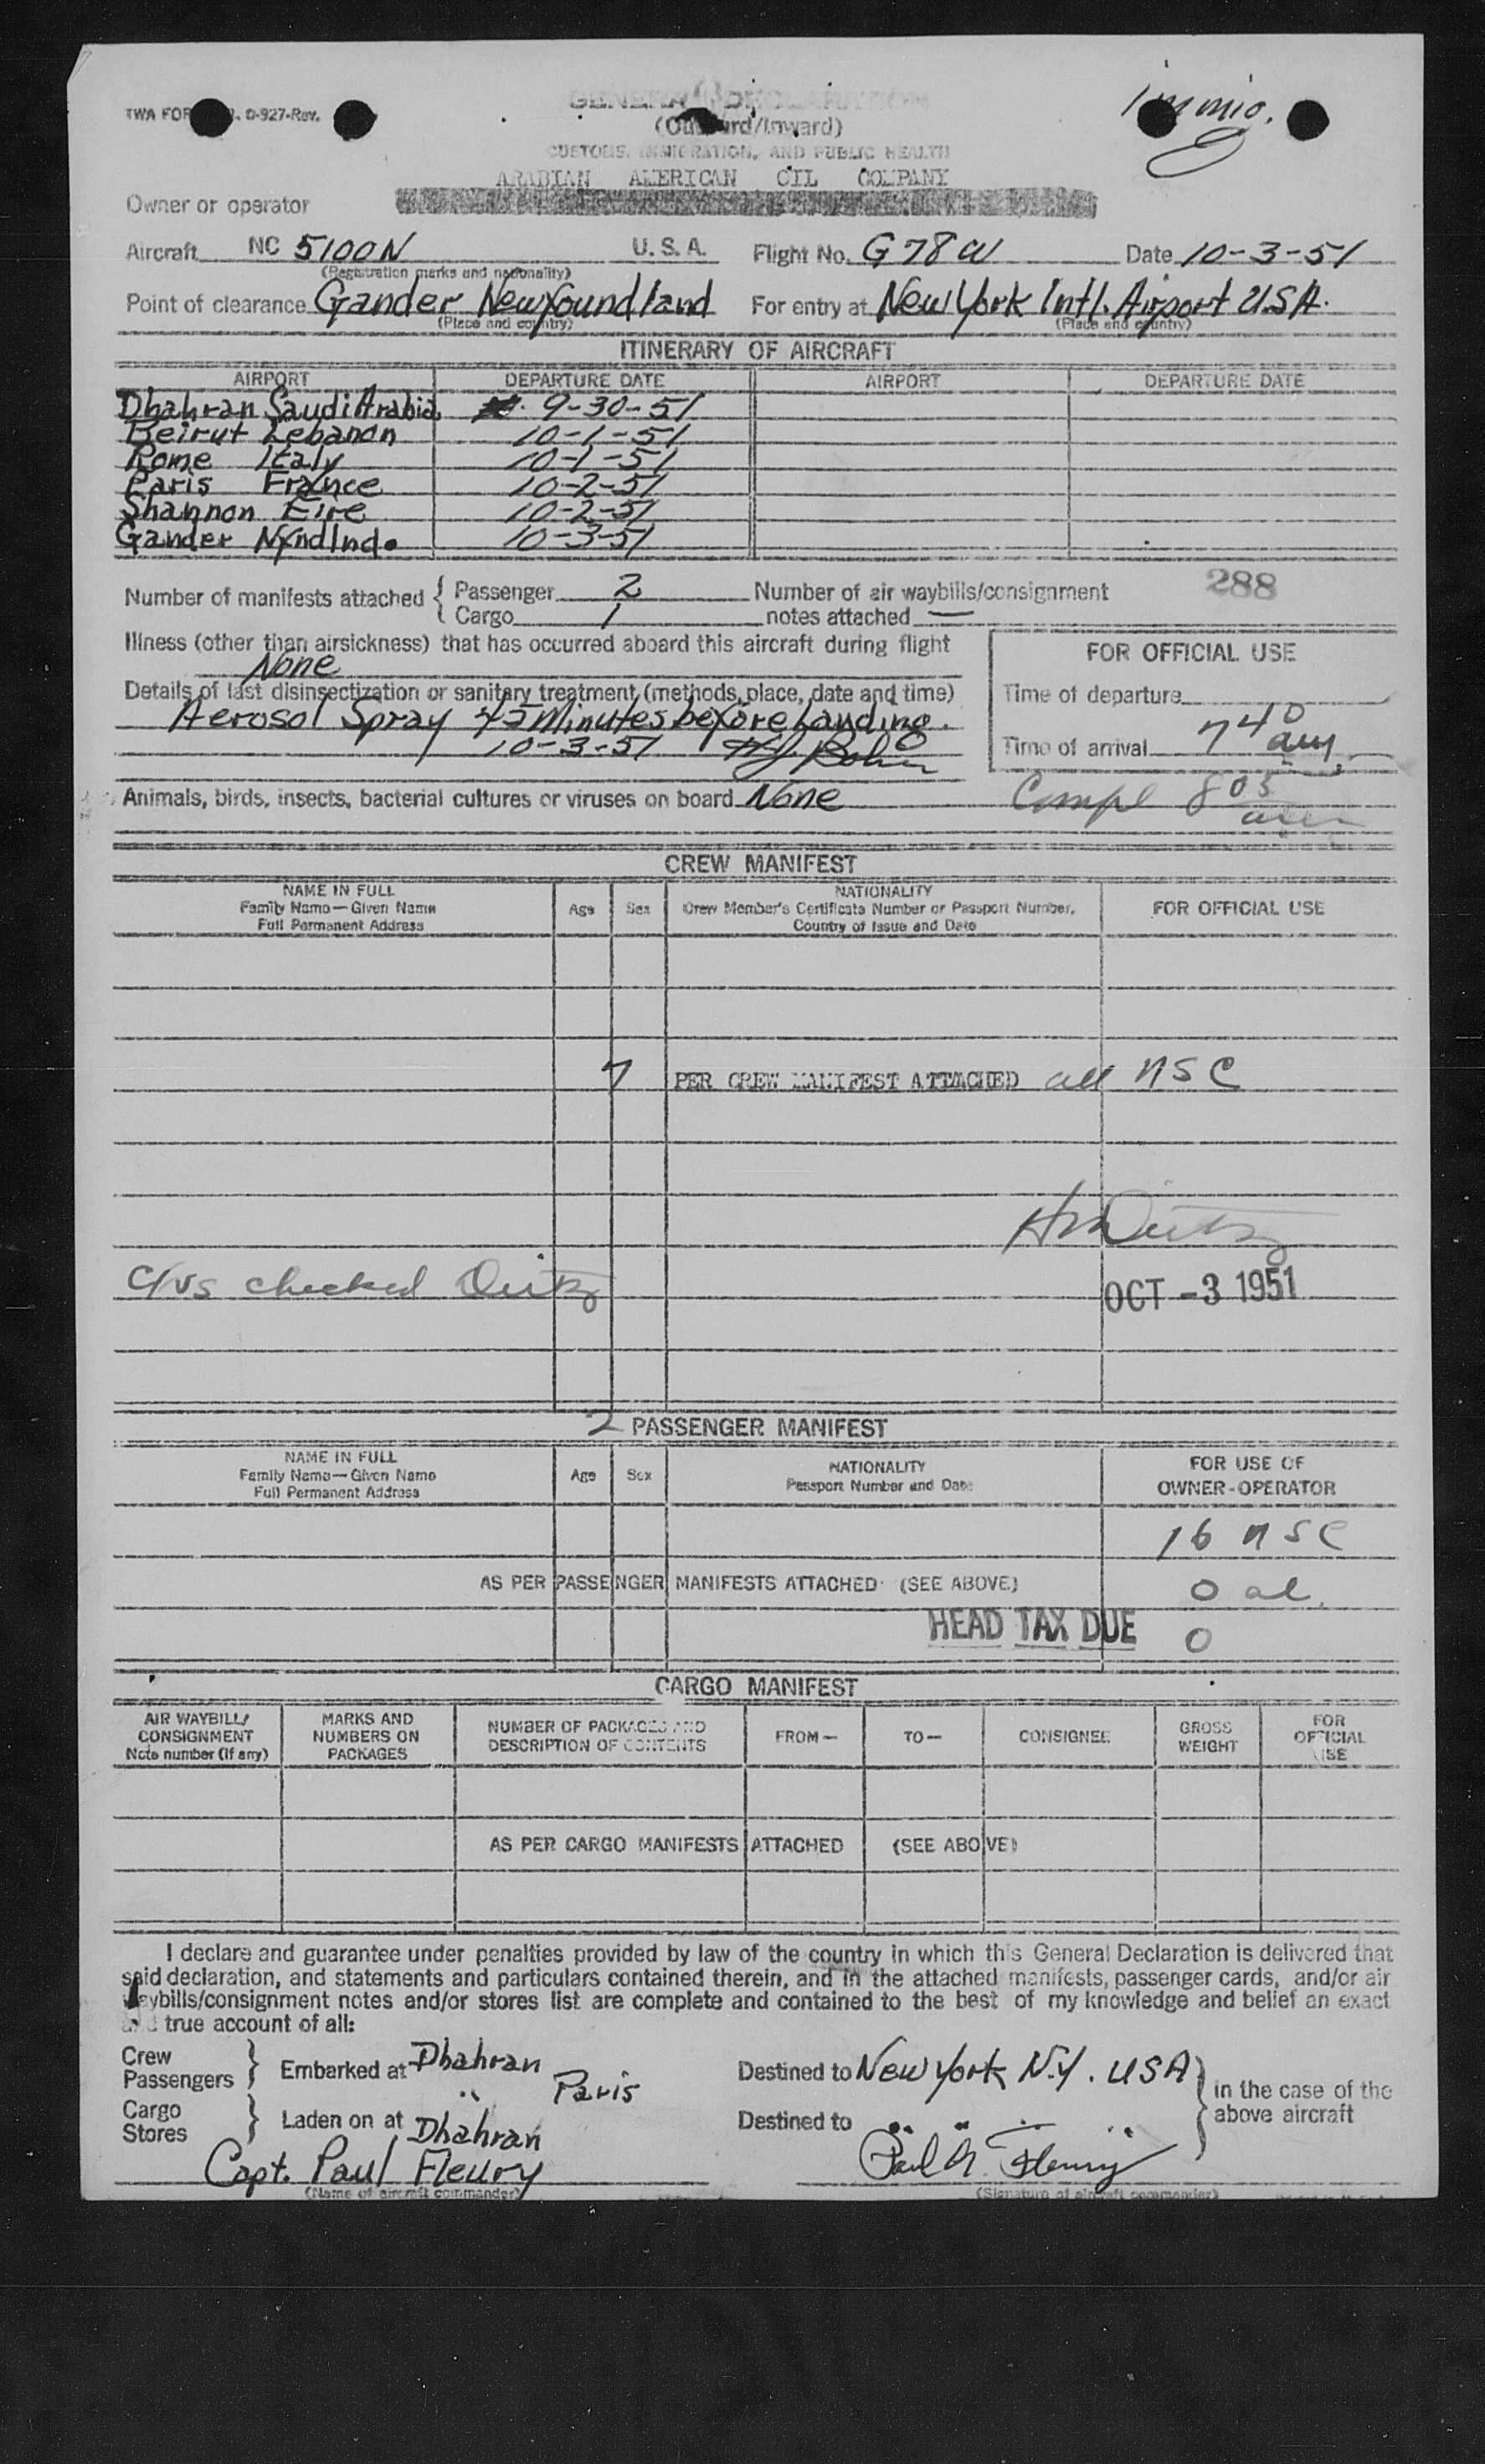 TWA FOR D-927-Rev.
immig.
GENERAL DECLARATION
(Outward/Inward)
CUSTOMS, IMMIGRATION, AND PUBLIC HEALTH
ARABIAN AMERICAN OIL COMPANY
Owner or operator
Aircraft NC 5100N U. S. A. Flight No. G78W Date 10-3-51
(Registration marks and nationality)
Point of clearance Gander Newfoundland For entry at New York Intl. Airport U.S.A.
(Place and country) (Place and country)
ITINERARY OF AIRCRAFT
AIRPORT DEPARTURE DATE AIRPORT DEPARTURE DATE
Dhahran Saudi Arabia 9-30-51
Beirut Lebanon 10-1-51
Rome Italy 10-1-51
Paris France 10-2-51
Shannon Eire 10-2-51
Gander Nfndlnd. 10-3-51
Number of manifests attached { Passenger 2 Number of air waybills/consignment 288
Cargo 1 notes attached —
Illness (other than airsickness) that has occurred aboard this aircraft during flight
None
FOR OFFICIAL USE
Details of last disinsectization or sanitary treatment (methods, place, date and time)
Time of departure
Aerosol Spray 45 Minutes before Landing.
10-3-51
Time of arrival 740 am.
Animals, birds, insects, bacterial cultures or viruses on board None
Compl 805 am
CREW MANIFEST
NAME IN FULL Family Name—Given Name Full Permanent Address Age Sex NATIONALITY Crew Member's Certificate Number or Passport Number, Country of Issue and Date FOR OFFICIAL USE
7 PER CREW MANIFEST ATTACHED all NSC
c/vs checked
OCT -3 1951
2 PASSENGER MANIFEST
NAME IN FULL Family Name—Given Name Full Permanent Address Age Sex NATIONALITY Passport Number and Date FOR USE OF OWNER-OPERATOR
16 NSC
AS PER PASSENGER MANIFESTS ATTACHED (SEE ABOVE) 0 al.
HEAD TAX DUE 0
CARGO MANIFEST
AIR WAYBILL/ CONSIGNMENT Note number (if any) MARKS AND NUMBERS ON PACKAGES NUMBER OF PACKAGES AND DESCRIPTION OF CONTENTS FROM— TO— CONSIGNEE GROSS WEIGHT FOR OFFICIAL USE
AS PER CARGO MANIFESTS ATTACHED (SEE ABOVE)
I declare and guarantee under penalties provided by law of the country in which this General Declaration is delivered that
said declaration, and statements and particulars contained therein, and in the attached manifests, passenger cards, and/or air
waybills/consignment notes and/or stores list are complete and contained to the best of my knowledge and belief an exact
and true account of all:
Crew
Passengers } Embarked at Dhahran Destined to New York N.Y. USA
" Paris in the case of the
Cargo above aircraft
Stores } Laden on at Dhahran Destined to " " " "
Capt. Paul Fleury Paul A. Fleury
(Name of aircraft commander) (Signature of aircraft commander)